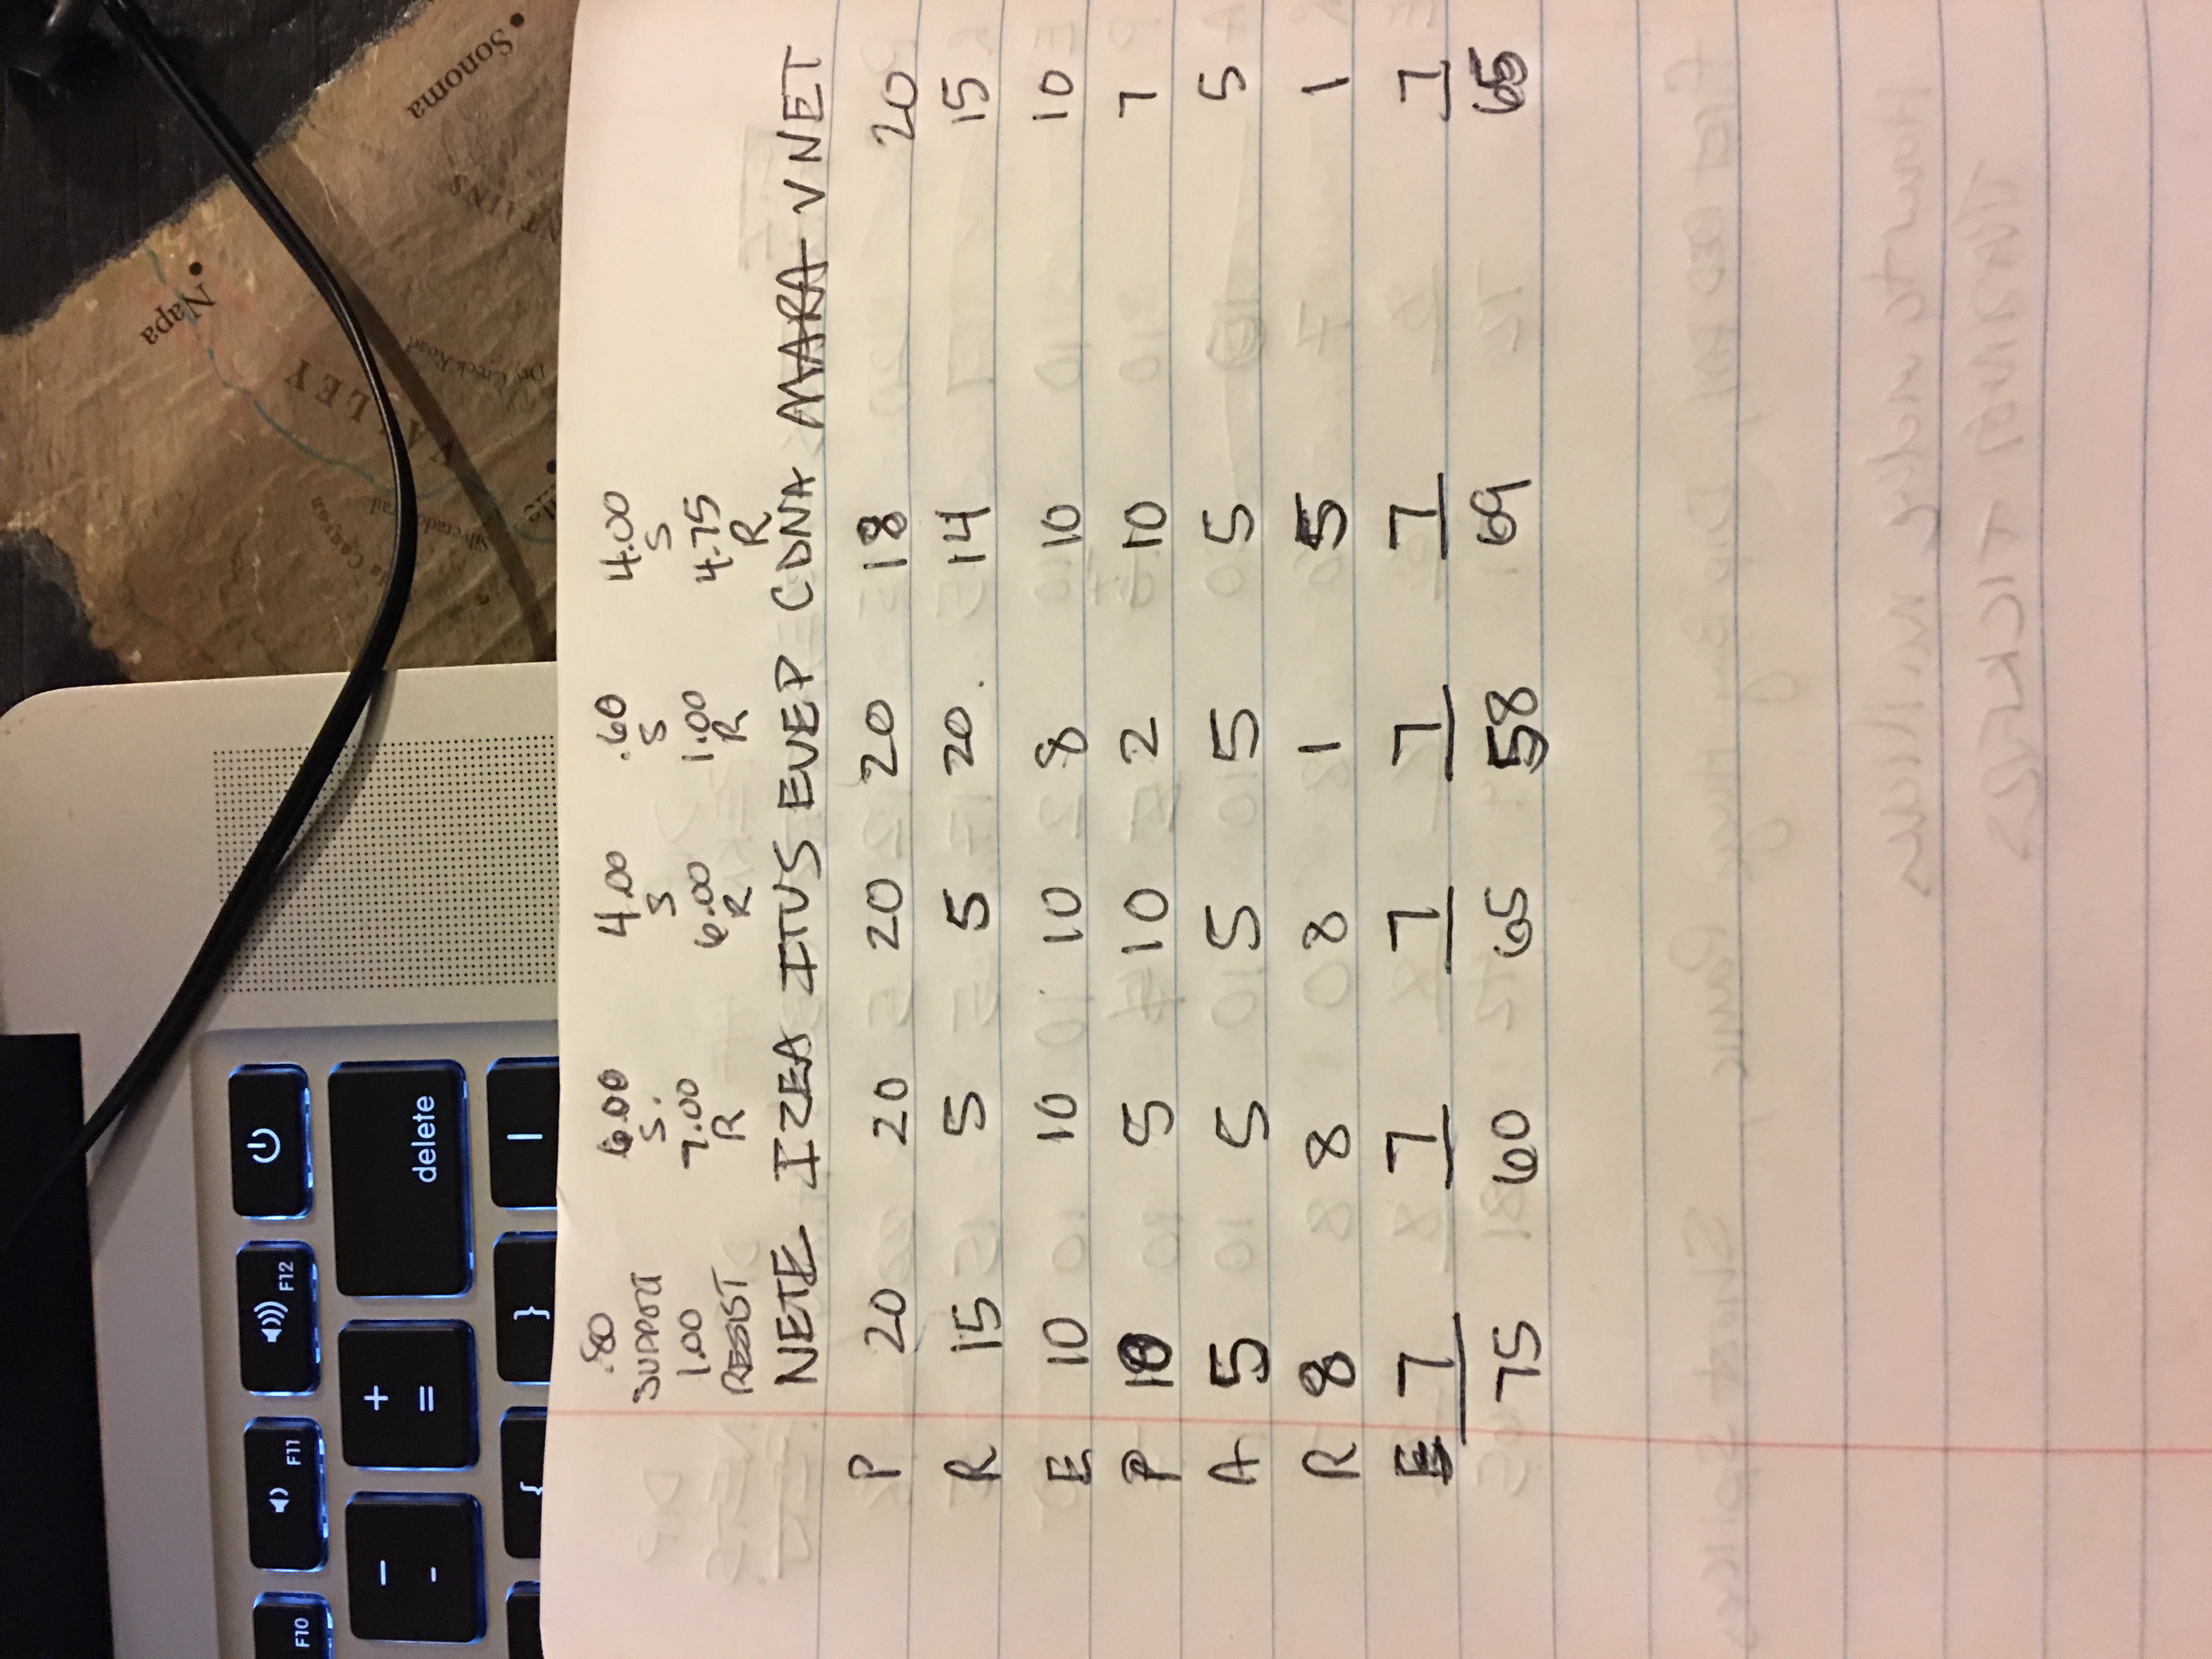 .80 6.00 4.00 .60 4.00
SUPPORT S. S S S
1.00 7.00 6.00 1.00 4.75
RESIST R R R R
NETE IZEA ITUS EVEP CDNA MARA VNET
P 20 20 20 20 18 20
R 15 5 5 20. 14 15
E 10 10 10 8 10 10
P 10 5 10 2 10 7
A 5 5 5 5 5 5
R 8 8 8 1 5 1
E 7 7 7 7 7 7
75 60 65 58 69 65
Sonoma
Napa
VALLEY
Dry Creek Road
delete
F12
F11
F10
+
=
}
{